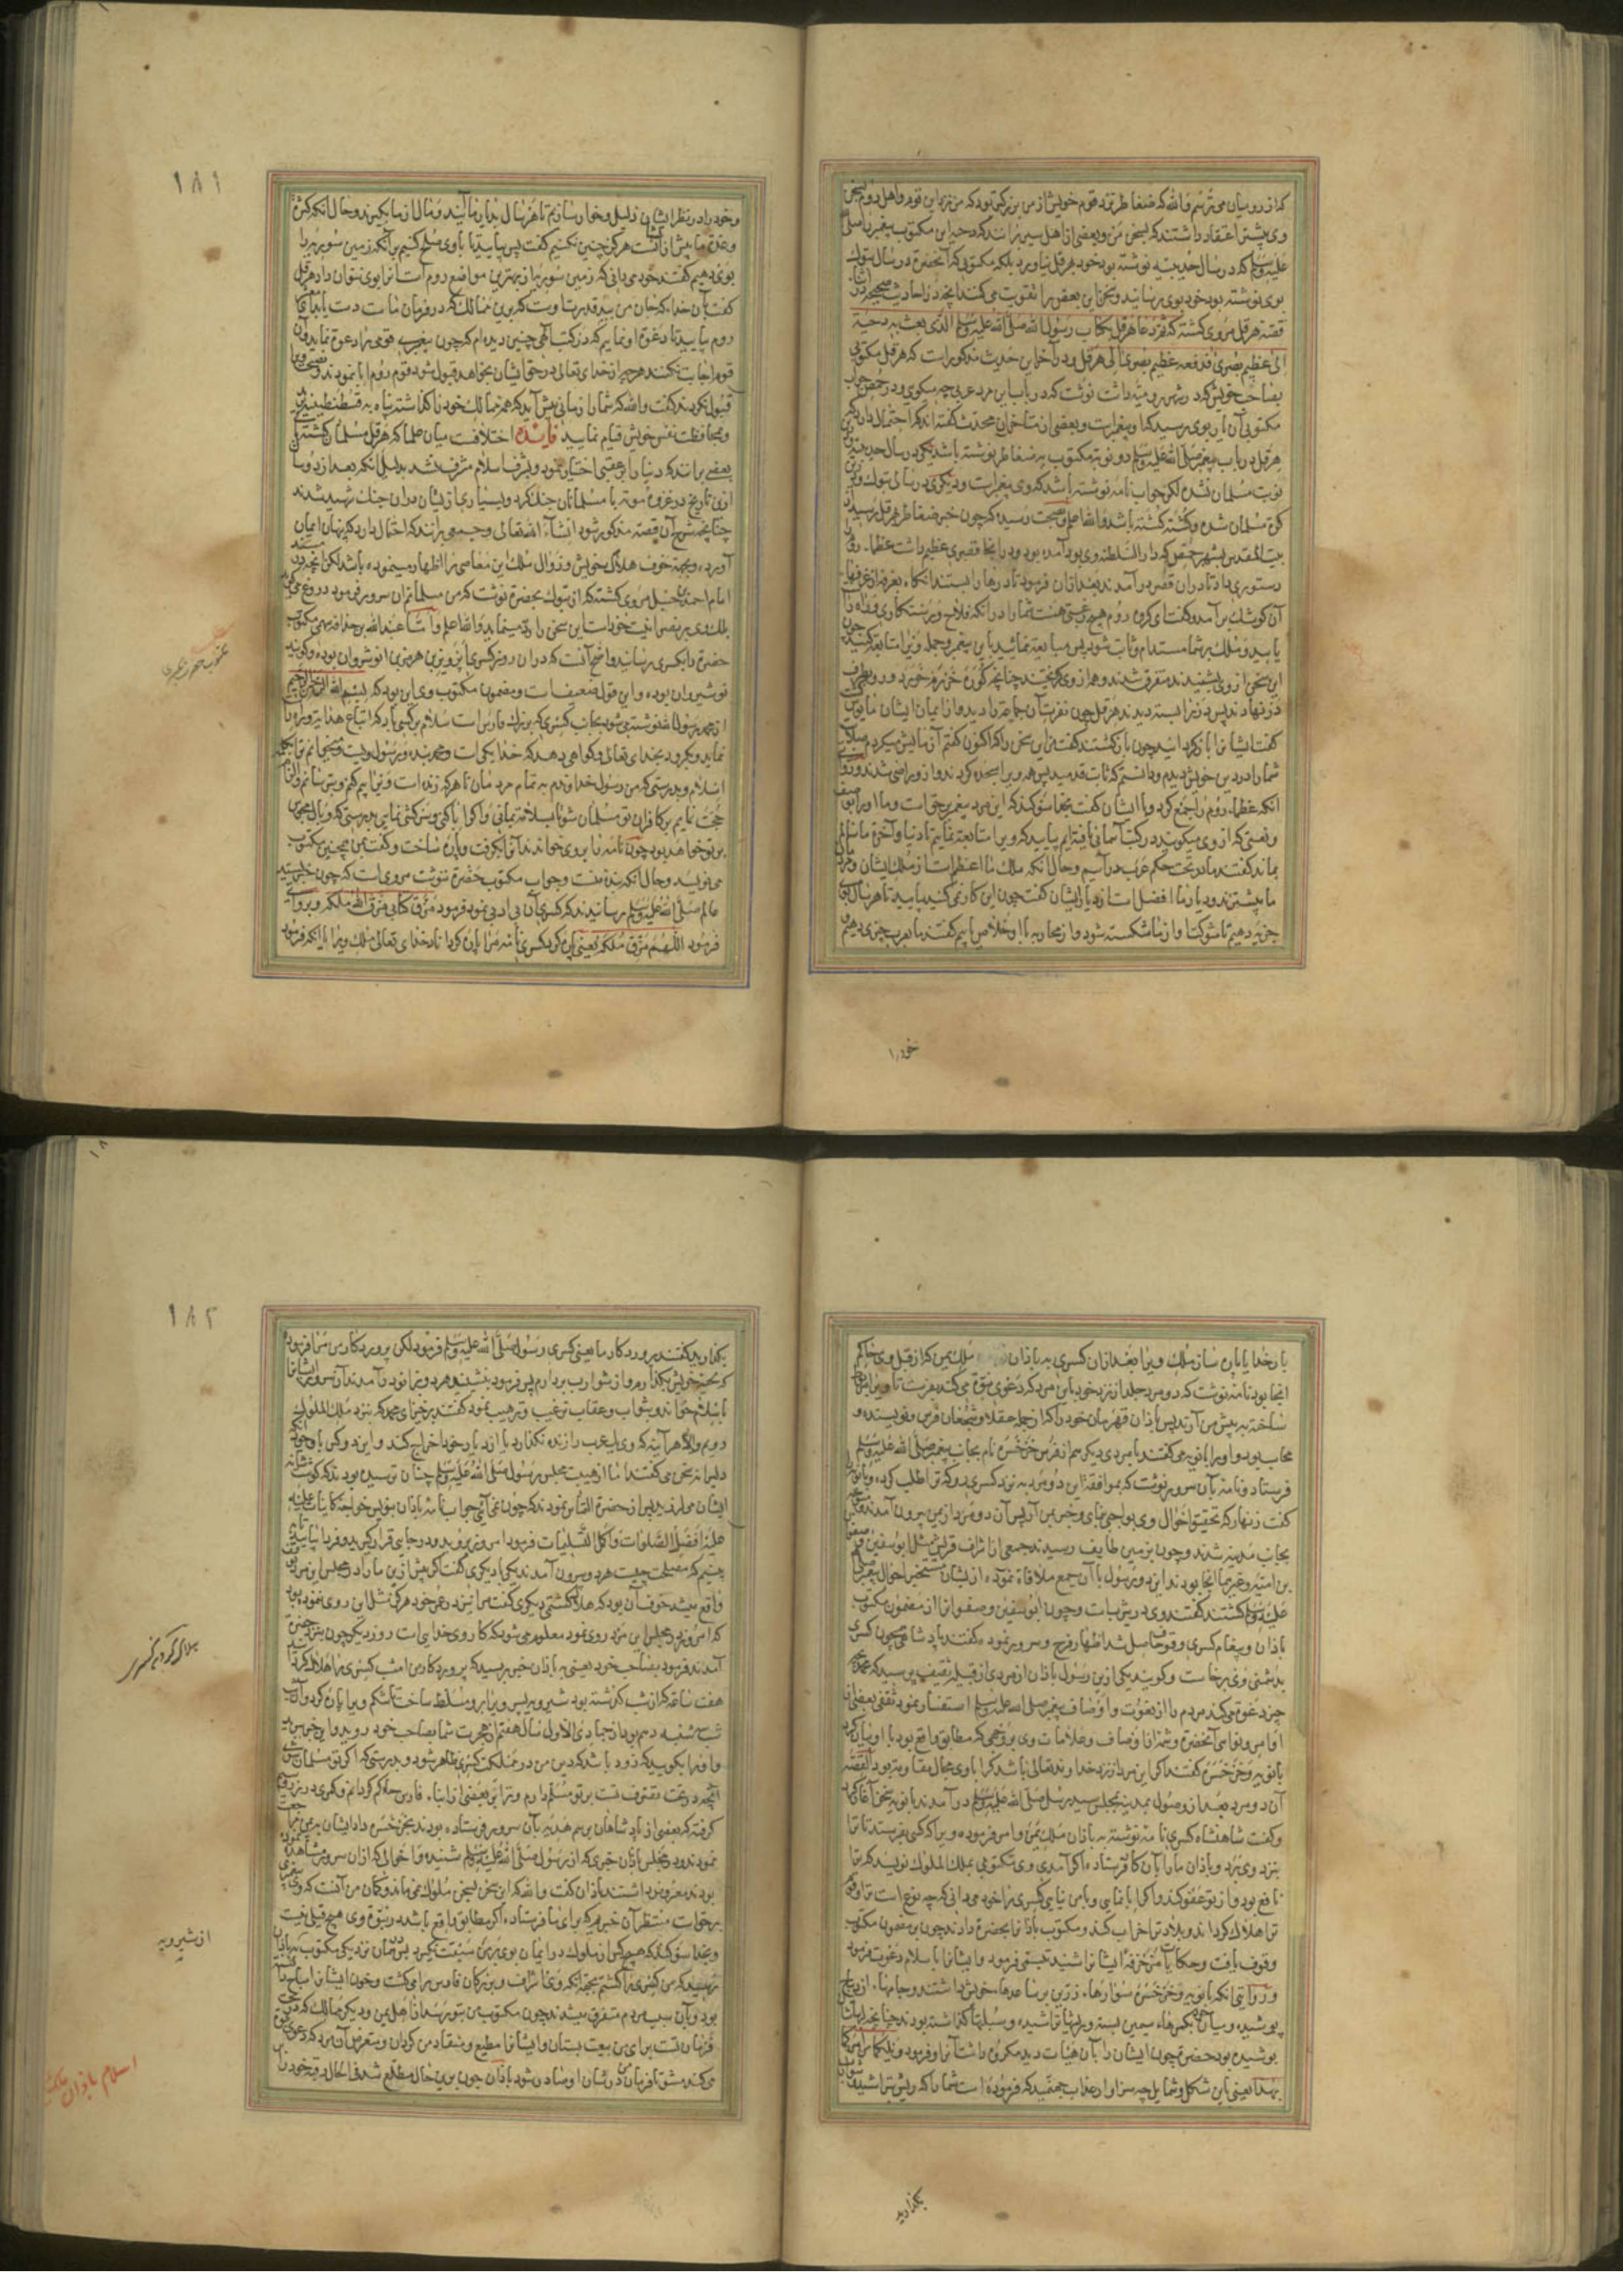 که از رومیان می‌ترسم والله که ضغاطر نزد قوم خویش از من بزرگتر بود که من نزد این قوم و اهل روم بسخن
وی بیشتر اعتقاد داشتند که بسخن من و بعضی از اهل سیر برانند که دحیه این مکتوب پیغمبر را صلی
علیه وسلم که در سال حدیبیه نوشته بود خود بهرقل نیاورد بلکه مکتوبی که آنحضرة در سال تبوک
بوی نوشته بود خود بوی رسانید و سخن این بعض را تقویت می‌کند آنچه در احادیث صحیحه در اثنا
قصه هرقل مروی گشته که ثم دعا هرقل بکتاب رسول الله صلی الله علیه وسلم الذی بعث به دحیة
الی عظیم بصری فدفعه عظیم بصری الی هرقل و در آخر این حدیث مذکور است که هرقل مکتوبی
بصاحب خویش که در شهر رومیه داشت نوشت که در باب این مرد عربی چه میگوی و در حمص جواب
مکتوبی آن یار بوی رسید که او پیغمبر است و بعضی از متاخران محدث گفته‌اند که احتمال دارد که
هرقل در باب پیغمبر صلی الله علیه وسلم دو نوبت مکتوب به ضغاطر نوشته باشد یکی در سال حدیبیه و درین
نوبت مسلمان نشده لکن جواب نامه نوشته باشد که وی پیغمبر است و دیگری در سال تبوک و درین
کرة مسلمان شده و کشته گشته باشد والله اعلم و بصحت رسیده که چون خبر ضغاطر بهرقل رسید از
بیت المقدس بشهر حمص که دار السلطنه وی بود آمده بود و در انجا قصری عظیم داشت عظماء روم را
دستوری داد تا در ان قصر درآمدند بعد ازان فرمود تا درها را بستند انگاه بغرفه از غرفهای
آن کوشک برآمد و گفت ای گروه روم هیچ رغبتی هست شما را در آنکه فلاح و رستگاری و فواه راه
یابید و ملک بر شما مستدام و ثابت شود پس مبایعة نمائید باین پیغمبر و جمله ویرا متابعة کنید چون
این سخن از وی بشنیدند متفرق شدند و همه از وی گریختند چنانچه گوره خر رم خورد و روی بطرف
در نهادند پس درها بسته دیدند هرقل چون نفرت آن جماعة را دید و از ایمان ایشان مایوس گشت
گفت ایشانرا بازگردانید چون بازگشتند گفت من این سخن را که اکنون گفتم آزمایش میکردم صلابت
شما را در دین خویش دیدم و دانستم که ثابت قدمید پس همه ویرا سجده کردند و از و راضی شدند و روایتی
آنکه عظماء روم را جمع کرد و با ایشان گفت بخدا سوگند که این مرد پیغمبر بر حق است و ما او را بوصف
و نعتی که از وی میگویند در کتب آسمانی یافته‌ایم بیایید که ویرا متابعة نمایم تا دنیا و آخرة ما سالم
بماند گفتند ما در تحت حکم عرب درآییم و حال آنکه ملک ما اعظم است از ملک ایشان و مردان
ما بیشترند و دیار ما افضل است از دیار ایشان گفت چون این کار نمی‌کنید بیایید تا هر سال بوی
جزیه دهیم تا شوکت او از ما شکسته شود و از محاربه با او خلاص یابیم گفتند ما بعرب جزیه دهیم
خود را
۱۸۱
و خود را در نظر ایشان ذلیل و خوار سازیم تا هر سال بدیار ما آیند و مال از ما بگیرند و حال آنکه کثرة
و عدة ما بیش از آنست هرگز چنین نکنیم گفت پس بیایید تا با وی صلح کنیم بر آنکه زمین سوریه را
بوی دهیم گفتند خود می‌دانی که زمین سوریه از بهترین مواضع روم است انرا بوی نتوان داد هرقل
گفت بآن خدا که جان من بید قدرت اوست که بر وی ممالک که در فرمان ماست دست یابد ای معشر
روم بیایید تا دعوة او نمایم که در کتب الهی چنین دیده‌ام که چون پیغمبری قومی را دعوة نماید و آن
قوم اجابت نکنند هرچه از خدای تعالی در حق ایشان بخواهد قبول شود قوم روم ابا نمودند و نصیحت ویرا
قبول نکردند گفت والله که شما را زمانی پیش آید که همه ممالک خود را گذاشته پناه به قسطنطنیه برید
و بمحافظت نفس خویش قیام نمایید فایده اختلافست میان علما که هرقل مسلمان گشته یا نی
بعضی برانند که دنیا را بر عقبی اختیار نمود و بشرف اسلام مشرف نشد بدلیل آنکه بعد از دو سال
ازین تاریخ در غزوه موته با مسلمانان جنگ کرد و بسیاری از ایشان دران جنک شهید شدند
چنانچه شرح آن قصه مذکور شود انشاء الله تعالی و جمعی برانند که احتمال دارد که پنهان ایمان
آورده و بجهة خوف هلاک خویش و زوال ملک این معاصی را اظهار مینموده باشد لکن آنچه در مسند
امام احمد بن حنبل مروی گشته که از تبوک بحضرة نوشت که من مسلمانم آن سرور فرمود دروغ می‌گوید
بلکه وی بر نصرانیت خود است این سخن را رد مینماید والله اعلم و اما عبد الله بن حذافه سهمی مکتوب
حضرة را بکسری رسانید و اصح آنست که دران روز کسری پرویز بن هرمز بن انوشروان بوده و گویند
نوشیروان بوده و این قول ضعیف است و مضمون مکتوب وی این بود که بسم الله الرحمن الرحیم
از محمد رسول الله نوشته می‌شود بجانب کسری که بزرگ فارس است سلام بر کسی باد که اتباع هدایت و براه راست
نماید و بگرود بخدای تعالی و گواهی دهد که خدا یکی است و محمد بنده و رسول ویست و میخوانم ترا بکلمه
اسلام و بدرستی که من رسول خداوندم به تمام مردمان تا هر که زنده است ویرا بیم کنم و بترسانم و الزام
حجت نمایم بر کافران تو مسلمان شو تا بسلامة بمانی و اگر ابا کنی و سرکشی نمایی بدرستی که وبال مجوس
بر تو خواهد بود چون نامه را بر وی خواندند آنرا بگرفت و پاره ساخت و گفت بمن همچنین مکتوب
می‌نویسد و حال آنکه بنده منست و جواب مکتوب حضرة ننوشت مروی است که چون خبر بسید
عالم صلی الله علیه وسلم رسانیدند که کسری آن بی ادبی نمود فرمود مزق کتابی مزق الله ملکه و بروایتی
فرمود اللهم مزق ملکه یعنی پاره کرد کسری نامه مرا پاره کرداناد خدای تعالی ملک ویرا یا آنکه فرمود
بار خدایا پاره ساز ملک ویرا بعد ازان کسری به باذان ملک یمن که از قبل وی حاکم
آنجا بود نامه نوشت که دو مرد جلد از نزد خود باین مرد که دعوی نبوة می‌کند بفرست تا ویرا مقید
ساخته به پیش من آرند پس باذان قهرمان خود را که از جمله عقلا و شجعان فرس و نویسنده و
محاسب بود و او را بانویه می‌گفتند با مردی دیگر هم از فرس خرخسره نام بجانب پیغمبر صلی الله علیه وسلم
فرستاد و نامه بآن سرور نوشت که بموافقة این دو مرد به نزد کسری رو که ترا طلب کرده و بانویه را
گفت زنهار که تحقیق احوال وی بواجبی نمای و خبر بمن آر پس آن دو مرد از یمن بیرون آمدند و متوجه
بجانب مدینه شدند و چون بزمین طایف رسیدند جمعی از اشراف قریش مثل ابوسفین و صفوان
بن امیه و غیرهما آنجا بودند این دو رسول با آن جمع ملاقاة نموده از ایشان مستخبر احوال پیغمبر صلی الله
علیه وسلم گشتند گفتند وی در یثرب است و چون ابوسفین و صفوان را از مضمون مکتوب
باذان و پیغام کسری وقوف حاصل شد اظهار فرح و سرور نموده گفتند پادشاهی چون کسری
بدشمنی وی برخاست و گویند یکی ازین رسول باذان از مردی از قبیله ثقیف پرسید که محمد
چیز دعوة می‌کند مردم را از نعوت و اوصاف پیغمبر صلی الله علیه وسلم استفسار نمود ثقفی بعضی از
اوامر و نواهی آنحضرة و شمه از اوصاف و علامات وی بر وجهی که مطابق واقع بود با او بیان کرد
بانویه و خرخسره گفتند اگر این مرد از نزد خداوند تعالی باشد کرا با وی مجال مقاومة بود القصه
آن دو مرد بعد از وصول بمدینه بمجلس سید رسل صلی الله علیه وسلم درآمدند بانویه سخن آغاز کرد
و گفت شاهنشاه کسری نامه نوشته به باذان ملک یمن و امر فرموده ویرا که کسی بفرستد تا ترا
بنزد وی برد و باذان ما را بآن کار فرستاده اگر آمدی وی مکتوبی بملک الملوک نویسد که ترا
نافع بود و از تو عفو کند و اگر ابا نمایی و با من نیایی کسری را خود می‌دانی که چه نوع است ترا و قوم
ترا هلاک گرداند و بلاد ترا خراب کند و مکتوب باذان را بحضرة دادند چون بر مضمون مکتوب
وقوف یافت و حکایات مزخرفه ایشانرا شنید تبسمی فرمود و ایشانرا باسلام دعوت فرمود
و روایتی آنکه بانویه و خرخسره سوارهاء زرین بر ساعدهاء خویش داشتند و جامهاء از دیباج
پوشیده و میان خود بکمرهاء سیمین بسته و ریشها تراشیده و سبلتها گذاشته بودند چنانچه لبهایشان
پوشیده بود حضرة چون ایشان را بآن هیئات دید مکروه داشت آنرا و فرمود ویلکما من امرکما
بهذا یعنی باین شکل و شمایل چه سزاوار عذاب جهنمید که فرموده است شما را که ریش تراشید و شوارب
بگذارید
۱۸۲
بگذارید گفتند پروردکار ما یعنی کسری رسول صلی الله علیه وسلم فرمود لکن پروردکار من مرا فرموده
که محیة خویش بگذارم و از شوارب بردارم پس فرمود بنشینید هر دو بزانو درآمدند آن سرور ایشانرا
باسلام خواند و بثواب و عقاب ترغیب و ترهیب نمود گفتند برخیز ای محمد که بنزد ملک الملوک
رویم والا هر آینه که وی یک عرب را زنده نگذارد یا از دیار خود اخراج کند و این دو کس با وجود آنکه
دلیرانه سخن می‌گفتند اما از هیبت مجلس رسول صلی الله علیه وسلم چنان ترسیده بودند که گوشت شانه
ایشان می‌لرزید پس از حضرة التماس نمودند که چون نمی‌آیی جواب نامه باذان بنویس خواجه کاینات علیه
علیه افضل الصلوات و اکمل التسلیمات فرمود امروز بروید و در جایی قرار گیرید و فردا بیایید تا
ببینیم که مصلحت چیست هر دو بیرون آمدند یکی با دیگری گفت که اگر بیش ازین ما را در مجلس این مرد توقف
واقع میشد خوف آن بود که هلاک گشتمی دیگری گفت مرا نیز در عمر خود هرگز مثل این روی ننموده بود
که امروز در مجلس این مرد روی نمود معلوم می‌شود که کار وی خدایی است روز دیگر چون بنزد حضرة
آمدند فرمود بصاحب خود یعنی به باذان خبر برسید که پروردکار من امشب کسری را هلاک کرد
هفت ساعة که از شب گذشته بود شیرویه پسر ویرا برو مسلط ساخت تا شکم ویرا پاره کرد و آن شب
شب سه شنبه دهم بود از جمادی الاول سال هفتم از هجرت شما بصاحب خود روید و این خبر ببرید
و او را بگویید که زود باشد که دین من در مملکت کسری ظاهر شود و بدرستی که اگر تو مسلمان شوی
آنچه در تحت تصرف تست بر تو مسلم دارم و ترا بر بعضی از ابناء فارس حاکم گردانم و کمری زر و نقره
گرفته که بعضی از پادشاهان برسم هدیه بآن سرور فرستاده بودند بخرخسره داد ایشان به یمن مراجعت
نمودند و در مجلس باذان خبری که از رسول صلی الله علیه وسلم شنیده و احوالی که از ان سرور مشاهده نموده
بودند معروض داشتند باذان گفت والله که این سخن بسخن ملوک نمی‌ماند و گمان من آنست که وی پیغمبری
بر حق است منتظر آن خبرم که برای ما فرستاده اگر مطابق واقع باشد در نبوة وی هیچ قیلی نیست
و بخدا سوگند که هیچ کس از ملوک در ایمان بوی بر من سبقت نگیرد پس دران نزدیکی مکتوب شیرویه بباذان
رسید که من کسری را کشتم بجهة آنکه وی اشراف و بزرگان فارس را می‌کشت و خون ایشانرا مباح داشته
بود و بآن سبب مردم متفرق میشدند چون مکتوب من بتو رسد از اهل یمن و دیگر ممالک که در تحت
فرمان تست برای من بیعت بستان و ایشانرا مطیع و منقاد من گردان و متعرض آن مرد که دعوی نبوة
می‌کند مشو تا فرمان من در شان او صادر شود باذان چون برین حال مطلع شد فی الحال رقبه خود را
هلاک کردن کسری
از شیرویه
اسلام باذان ملک یمن